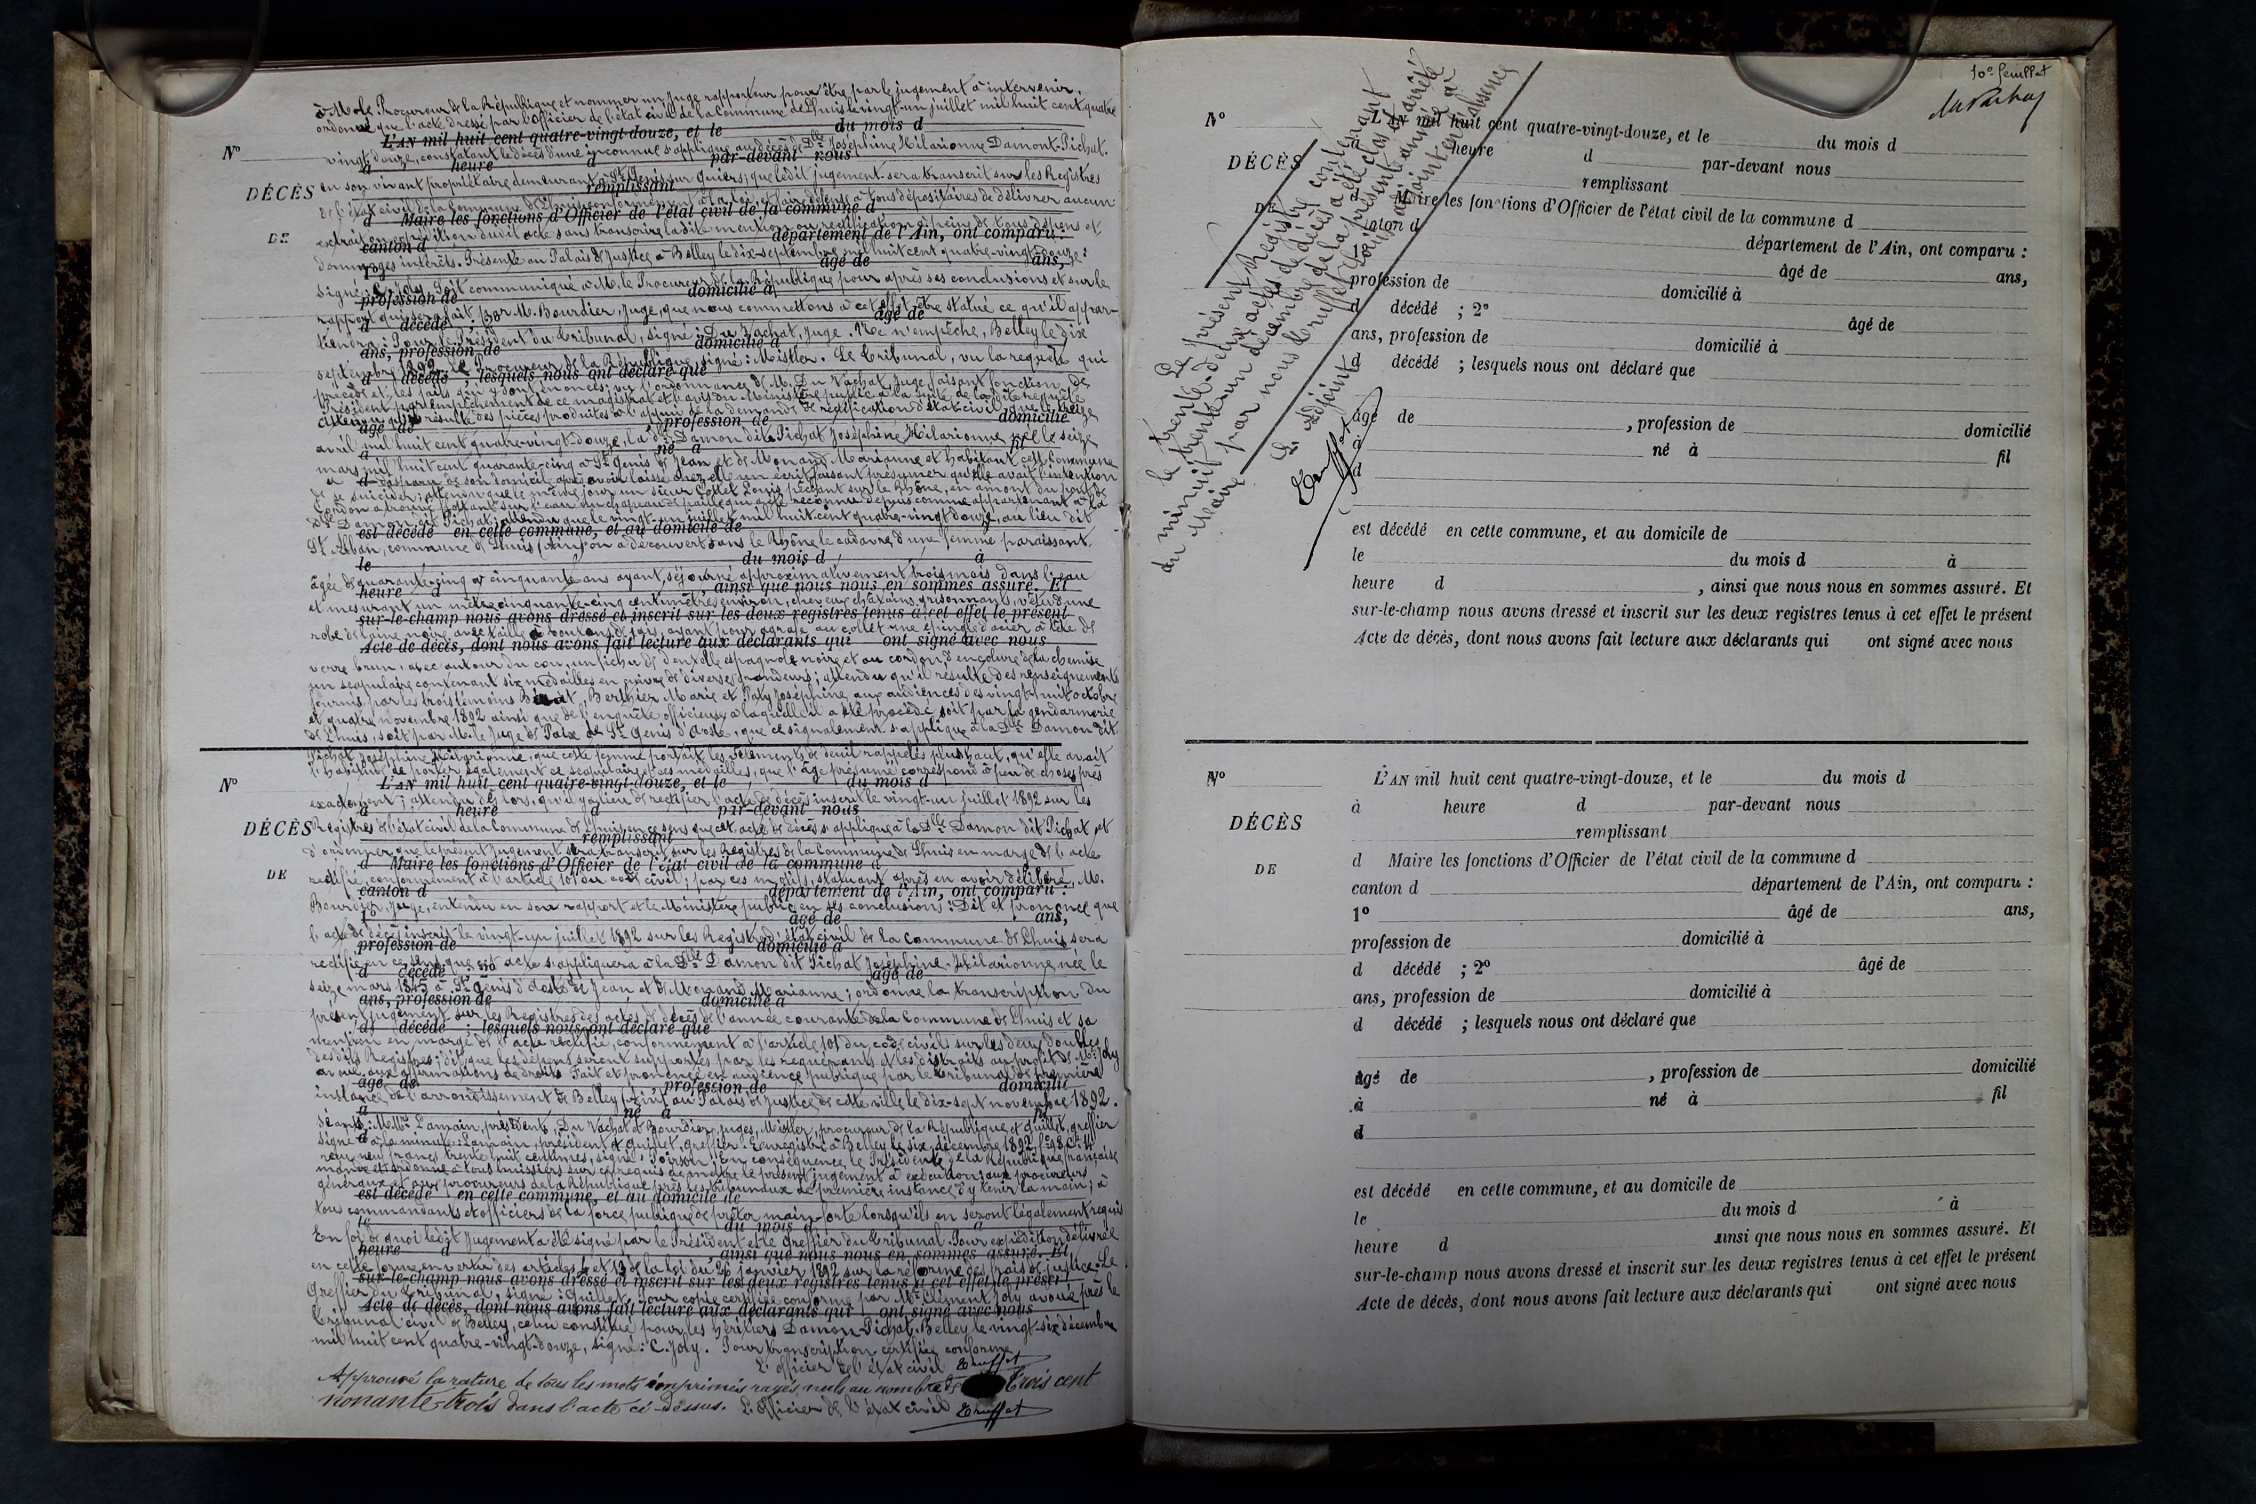 à M. le Procureur de la République et nommer un juge rapporteur pour être par le jugement à intervenir,
ordonné que l'acte dressé par l'officier de l'état civil de la Commune de Lhuis le vingt-un juillet mil huit cent quatre
L'AN mil huit cent quatre-vingt-douze, et le du mois d
vingt douze, constatant le décès d'une inconnue s'applique au décès de Dlle Joséphine Hilarionne Damont-Pichat.
Nº
à heure d par-devant nous
en son vivant propriétaire demeurant à St Genis sur Guiers; que ledit jugement sera transcrit sur les Registres
DÉCÈS
remplissant
de l'état civil de la Commune de Lhuis conformément à la loi, et faire défense à tous dépositaires de délivrer aucun
d Maire les fonctions d'Officier de l'état civil de la commune d
DE
extrait ou expédition dudit acte sans transcrire ladite mention ou rectification à peine de tous dépens et
canton d département de l'Ain, ont comparu :
dommages intérêts. Présenté au Palais de Justice à Belley le dix-septembre mil huit cent quatre-vingt douze:
1º âgé de ans,
signé: C. Joly. Soit communiqué à M. le Procureur de la République pour après ses conclusions et sur le
profession de domicilié à
rapport qui sera fait par M. Bourdier, Juge, que nous commettons à cet effet être statué ce qu'il appar-
d décédé ; 2º âgé de
tiendra: Pour le Président du Tribunal, signé: Du Vachat, juge. Vu et n'empêche, Belley le dix
ans, profession de domicilié à
septembre 1892. Le Procureur de la République, signé: Meistler. Le Tribunal, vu la requête qui
d décédé ; lesquels nous ont déclaré que
précède et les faits qui y sont énoncés; vu l'ordonnance de M. Du Vachat, Juge faisant fonction de
Président par empêchement de ce magistrat et l'avis du Ministère public à la suite de ladite requête
Attendu qu'il résulte des pièces produites à l'appui de la demande de rectification d'état civil que le treize
âgé de , profession de domicilié
avril mil huit cent quatre-vingt-douze, la dlle Damon dite Pichat Joséphine Hilarionne née le seize
à né à fil
mars mil huit cent quarante-cinq à St Genis de Jean et de Monand Marianne et habitant cette Commune
d
a disparu de son domicile après avoir laissé chez elle un écrit faisant présumer qu'elle avait l'intention
de se suicider; attendu que le même jour un sieur Collet Louis pêchant sur le Rhône, en amont du pont de
Cordon a trouvé flottant sur l'eau un chapeau de paille qui a été reconnu depuis comme appartenant à la
Dlle Damon dit Pichat; attendu que le vingt-un juillet mil huit cent quatre-vingt douze, au lieu dit
est décédé en cette commune, et au domicile de
St Alban, commune de Lhuis (Ain) on a découvert dans le Rhône le cadavre d'une femme paraissant
le du mois d à
âgée de quarante-cinq à cinquante ans ayant séjourné approximativement trois mois dans l'eau
heure d , ainsi que nous nous en sommes assuré. Et
et mesurant un mètre cinquante-cinq centimètres environ, cheveux châtains grisonnants, vêtue d'une
sur-le-champ nous avons dressé et inscrit sur les deux registres tenus à cet effet le présent
robe de laine noire avec taille à boutons de jais, ayant pour agrafe au collet une épingle d'acier à tête de
Acte de décès, dont nous avons fait lecture aux déclarants qui ont signé avec nous
verre brun, avec autour du cou, un fichu de dentelle espagnole noire et au cordon d'encolure de la chemise
un scapulaire contenant six médailles en cuivre de diverses grandeurs; attendu qu'il résulte des renseignements
fournis par les trois témoins Berthier Marie et Paty Joséphine aux audiences des vingt-huit octobre
et quatre novembre 1892 ainsi que de l'enquête officieuse à laquelle il a été procédé soit par la gendarmerie
de Lhuis, soit par M. le Juge de Paix de St Genis d'Aoste, que ce signalement s'applique à la Dlle Damon dit
Pichat Joséphine Hilarionne, que cette femme portait les vêtements de deuil rappelés plus haut, qu'elle avait
l'habitude de porter également ce scapulaire et ces médailles, que l'âge présumé correspond à peu de choses près
L'AN mil huit cent quatre-vingt-douze, et le du mois d
Nº
exactement; attendu dès lors, qu'il y a lieu de rectifier l'acte de décès inscrit le vingt-un juillet 1892 sur les
à heure d par-devant nous
Registres de l'état civil de la Commune de Lhuis en ce sens que cet acte de décès s'applique à la Dlle Damon dit Pichat et
DÉCÈS
remplissant
d'ordonner que le présent jugement sera transcrit sur les Registres de la Commune de Lhuis en marge de l'acte
d Maire les fonctions d'Officier de l'état civil de la commune d
DE
rectifié, conformément à l'article 101 du code civil; par ces motifs, statuant après en avoir délibéré, M.
canton d département de l'Ain, ont comparu :
Bourdier, Juge, entendu en son rapport et le Ministère public en ses conclusions: Dit et prononce que
1º âgé de ans,
l'acte de décès inscrit le vingt-un juillet 1892 sur les Registres d'état civil de la Commune de Lhuis sera
profession de domicilié à
rectifié en ce sens que cet acte s'appliquera à la Dlle Damon dit Pichat Joséphine Hilarionne née le
d décédé ; 2º âgé de
seize mars 1845 à St Genis d'Aoste de Jean et de Monand Marianne; ordonne la transcription du
ans, profession de domicilié à
présent jugement sur les Registres des actes de décès de l'année courante de la Commune de Lhuis et sa
d décédé ; lesquels nous ont déclaré que
mention en marge de l'acte rectifié, conformément à l'article 101 du code civil sur les deux doubles
desdits Registres; dit que les dépens seront supportés par les requérants et les distraits au profit de Me Joly
avoué aux affirmations de droit. Fait et prononcé en audience publique par le Tribunal de première
âgé de , profession de domicilié
instance de l'arrondissement de Belley (Ain) au Palais de justice de cette ville le dix-sept novembre 1892.
à né à fil
Séants: MM. Lamain, président, Du Vachat et Bourdier, juges, Meistler, procureur de la République et Guillet, greffier
d
signé à la minute: Lamain, président et Guillet, greffier. Enregistré à Belley le six décembre 1892
reçu neuf francs trente huit centimes, signé: Poisson. En conséquence le Président de la République française
mande et ordonne à tous huissiers sur ce requis de mettre le présent jugement à exécution; aux procureurs
généraux et aux procureurs de la République près les tribunaux de première instance d'y tenir la main; à
est décédé en cette commune, et au domicile de
tous commandants et officiers de la force publique de prêter main-forte lorsqu'ils en seront légalement requis
le du mois d à
En foi de quoi ledit jugement a été signé par le Président et le Greffier du Tribunal. Pour expédition délivrée
heure d , ainsi que nous nous en sommes assuré. Et
en cette forme en vertu des articles 4 et 13 de la loi du 26 janvier 1892 sur la réforme des frais de justice. Le
sur-le-champ nous avons dressé et inscrit sur les deux registres tenus à cet effet le présent
Greffier du Tribunal, signé: Guillet. Pour copie certifiée conforme par Me Clément Joly avoué près le
Acte de décès, dont nous avons fait lecture aux déclarants qui ont signé avec nous
Tribunal civil de Belley, celui constitué pour les héritiers Damon-Pichat. Belley, le vingt-six décembre
mil huit cent quatre-vingt-douze, signé: C. Joly. Pour transcription certifiée conforme.
L'officier de l'état civil Truffat
Approuvé la rature de tous les mots imprimés rayés nuls au nombre de trois cent
nonante-trois dans l'acte ci-dessus. L'officier de l'état civil Truffat
10e feuillet
Nº
L'AN mil huit cent quatre-vingt-douze, et le du mois d
heure d par-devant nous
DÉCÈS
remplissant
DE
Maire les fonctions d'Officier de l'état civil de la commune d
canton d département de l'Ain, ont comparu :
âgé de ans,
profession de domicilié à
d décédé ; 2º âgé de
ans, profession de domicilié à
d décédé ; lesquels nous ont déclaré que
âgé de , profession de domicilié
à né à fil
d
est décédé en cette commune, et au domicile de
le du mois d à
heure d , ainsi que nous nous en sommes assuré. Et
sur-le-champ nous avons dressé et inscrit sur les deux registres tenus à cet effet le présent
Acte de décès, dont nous avons fait lecture aux déclarants qui ont signé avec nous
Le présent Registre contenant
trente-deux actes de décès a été clos et arrêté
le trente-un décembre de la présente année à
minuit par nous Truffat Louis adjoint en l'absence
du Maire
L'Adjoint
Truffat
Nº
L'AN mil huit cent quatre-vingt-douze, et le du mois d
à heure d par-devant nous
DÉCÈS
remplissant
DE
d Maire les fonctions d'Officier de l'état civil de la commune d
canton d département de l'Ain, ont comparu :
1º âgé de ans,
profession de domicilié à
d décédé ; 2º âgé de
ans, profession de domicilié à
d décédé ; lesquels nous ont déclaré que
âgé de , profession de domicilié
à né à fil
d
est décédé en cette commune, et au domicile de
le du mois d à
heure d ainsi que nous nous en sommes assuré. Et
sur-le-champ nous avons dressé et inscrit sur les deux registres tenus à cet effet le présent
Acte de décès, dont nous avons fait lecture aux déclarants qui ont signé avec nous